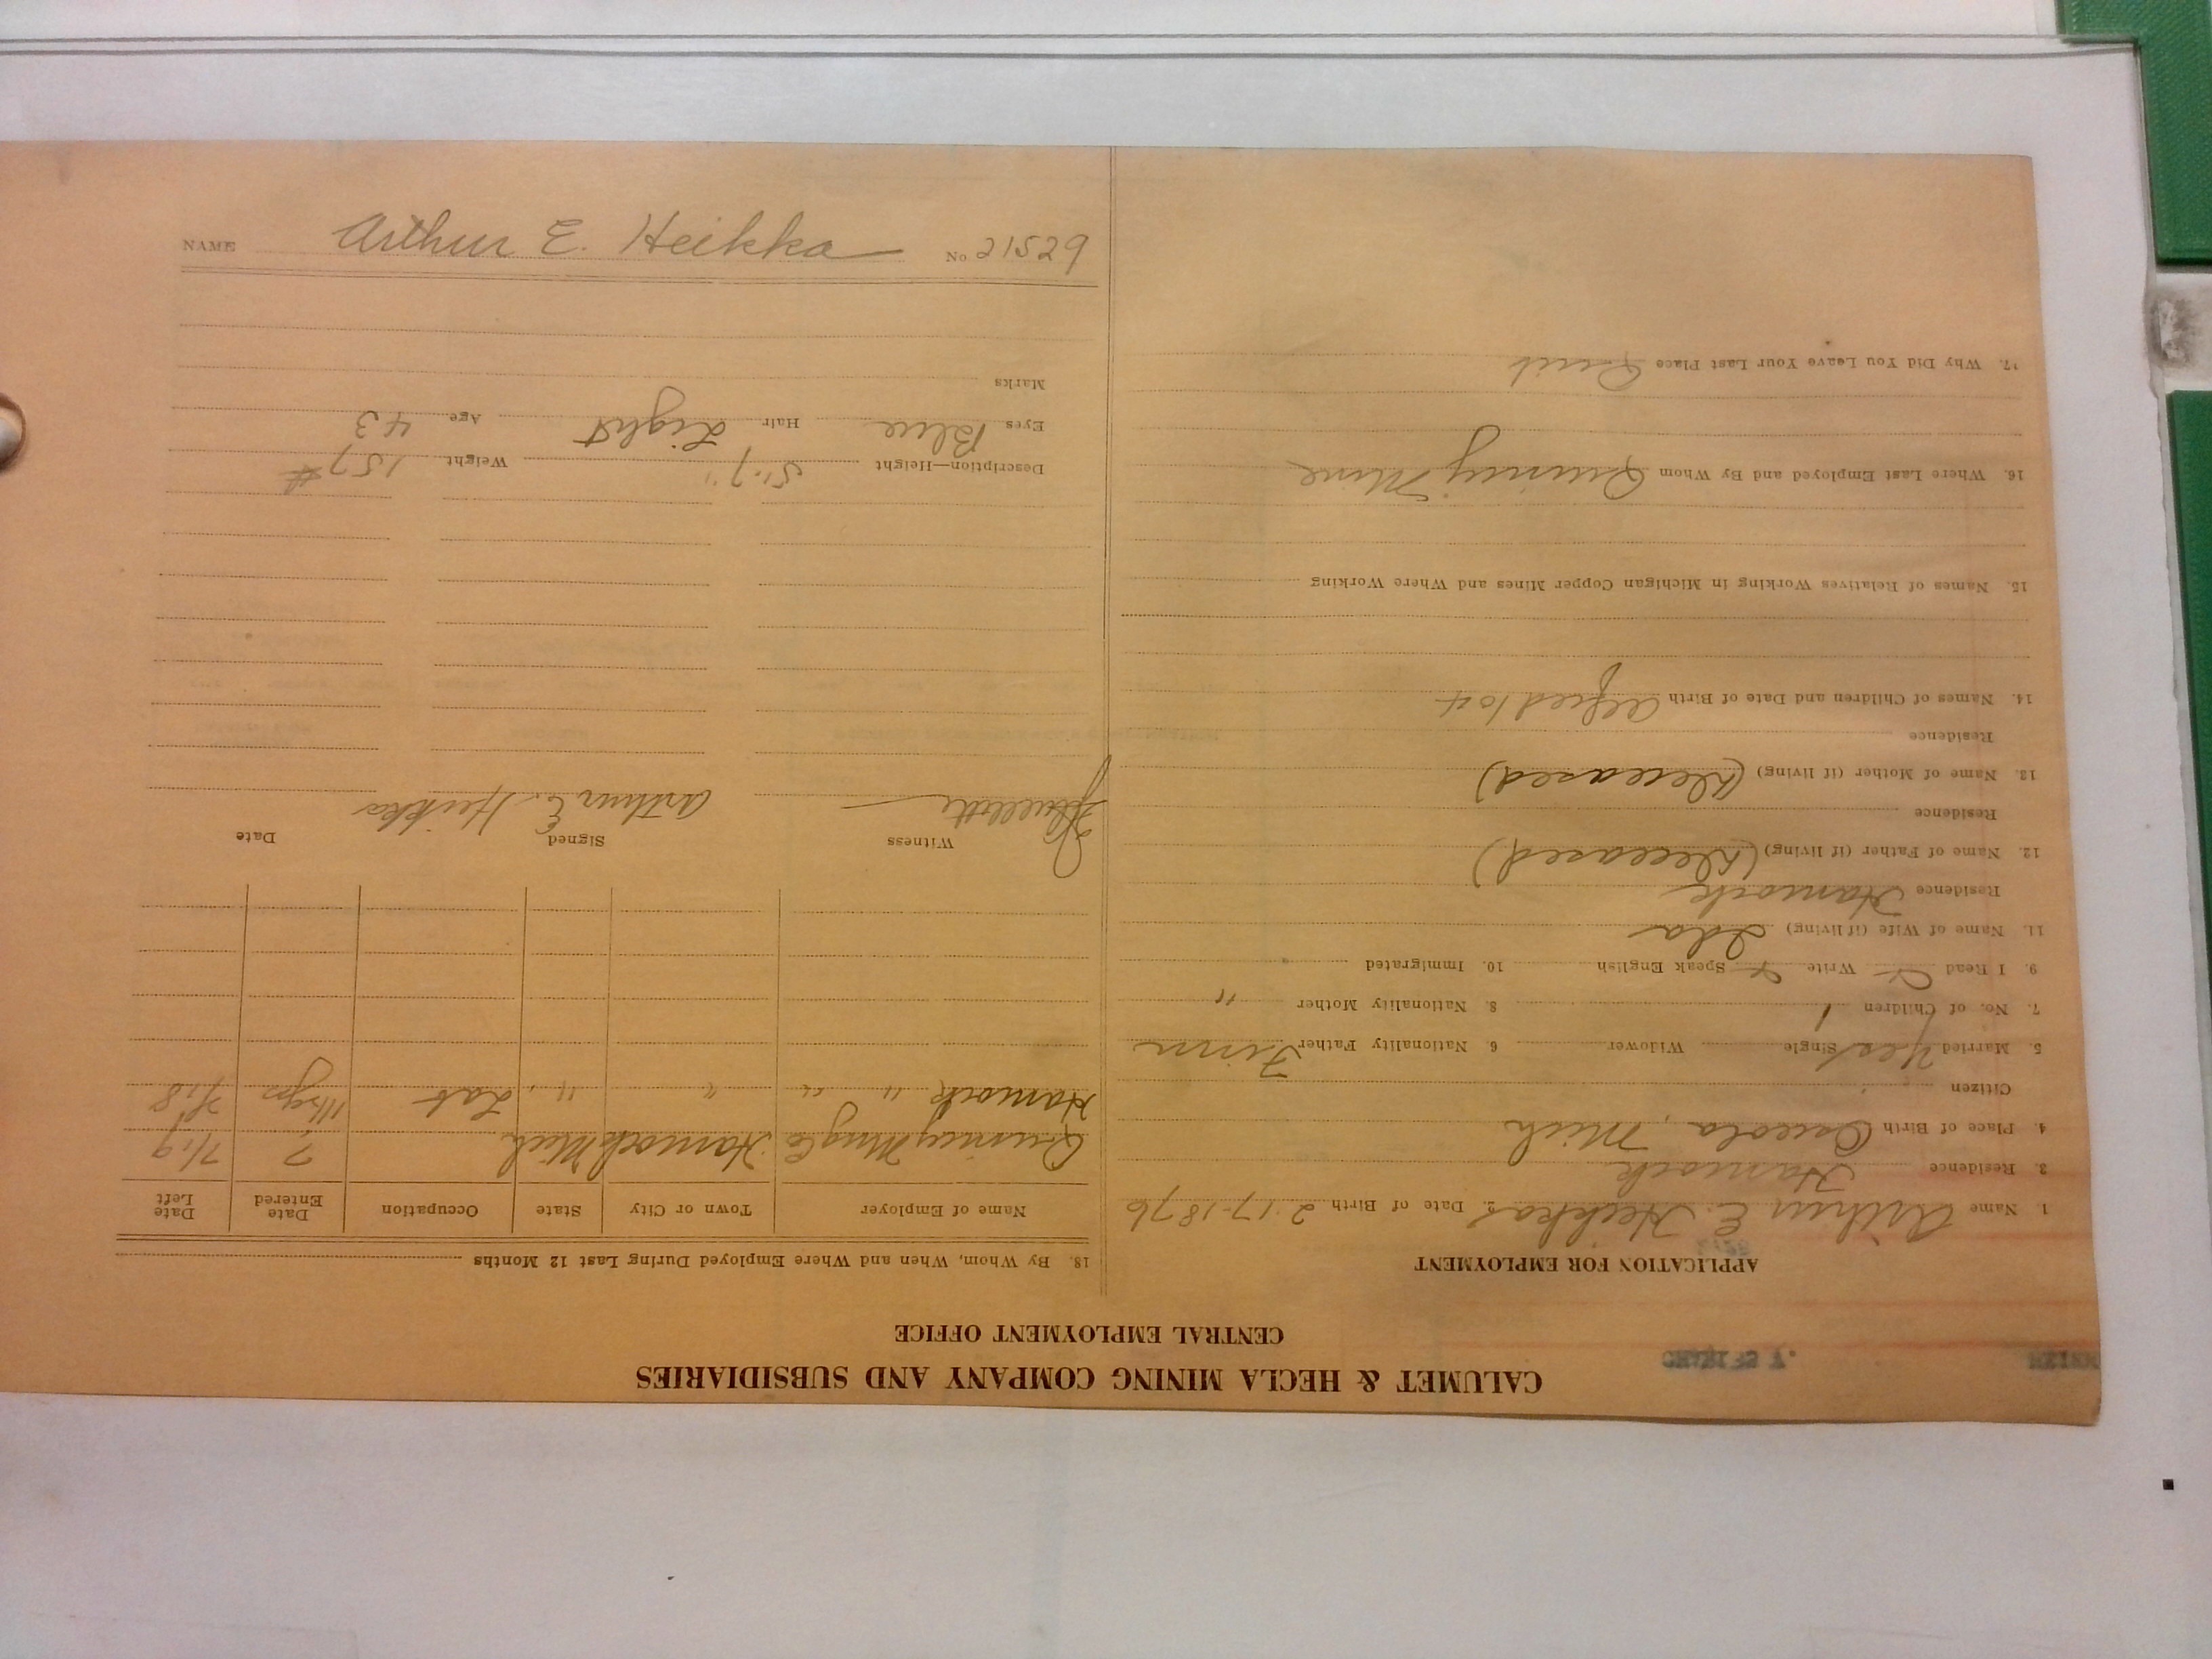 CALUMET & HECLA MINING COMPANY AND SUBSIDIARIES
CENTRAL EMPLOYMENT OFFICE
APPLICATION FOR EMPLOYMENT
1. Name Arthur E. Heikka 2. Date of Birth 2-17-1876
3. Residence Hancock
4. Place of Birth Osceola, Mich
Citizen
5. Married Yes Single Widower 6. Nationality Father Finn
7. No. of Children 1 8. Nationality Mother "
9. I Read Write Speak English 10. Immigrated
11. Name of Wife (if living) Ida
Residence Hancock
12. Name of Father (if living) (Deceased)
Residence
13. Name of Mother (if living) (Deceased)
Residence
14. Names of Children and Date of Birth Alfred 10
15. Names of Relatives Working in Michigan Copper Mines and Where Working
16. Where Last Employed and By Whom Quincy Mine
17. Why Did You Leave Your Last Place Quit
18. By Whom, When and Where Employed During Last 12 Months
Name of Employer Town or City State Occupation Date Entered Date Left
Quincy Mng Co Hancock Mich ? 7/19
Hancock " " " " Lab 7/18
Witness Signed Date
Arthur E. Heikka
Description—Height 5'-7" Weight 157#
Eyes Blue Hair Light Age 43
Marks
NAME Arthur E. Heikka No 21529